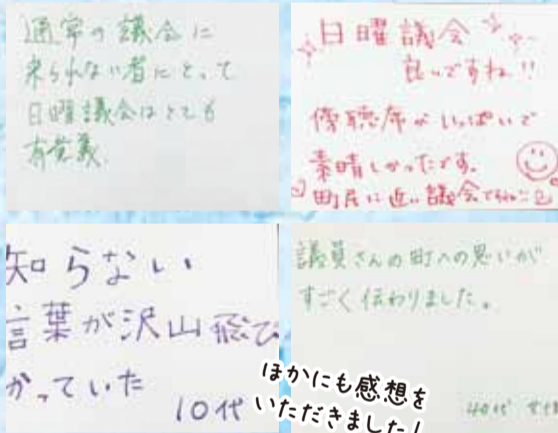 通常の議会に
来られない者にとって
日曜議会はとても
有意義
日曜議会
良いですね!!
傍聴席がいっぱいで
素晴しかったです。
町民に近い議会ですね
知らない
言葉が沢山飛び
かっていた
10代
議員さんの町への思いが
すごく伝わりました。
40代 女性
ほかにも感想を
いただきました!